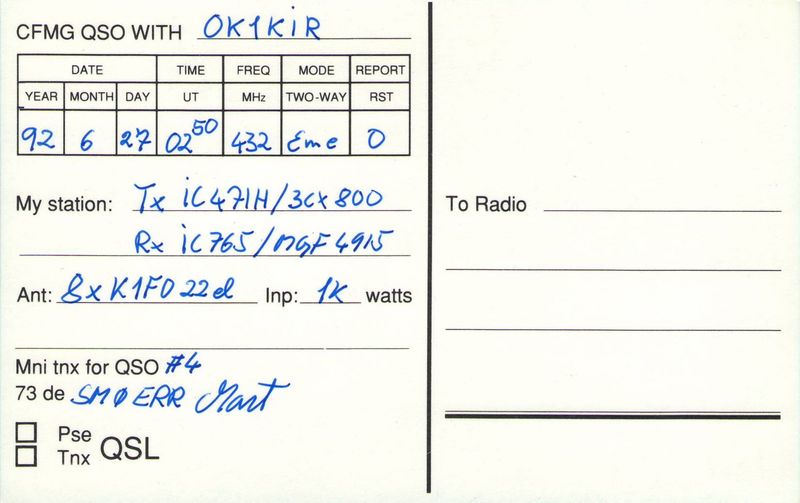 CFMG QSO WITH OK1KIR
DATE TIME FREQ MODE REPORT
YEAR MONTH DAY UT MHz TWO-WAY RST
92 6 27 02 50 432 Eme O
My station: Tx iC471H/3cx800
Rx iC765/MGF4915
Ant: 8x K1FO 22el Inp: 1K watts
Mni tnx for QSO #4
73 de SMØERR Mart
Pse
Tnx QSL
To Radio